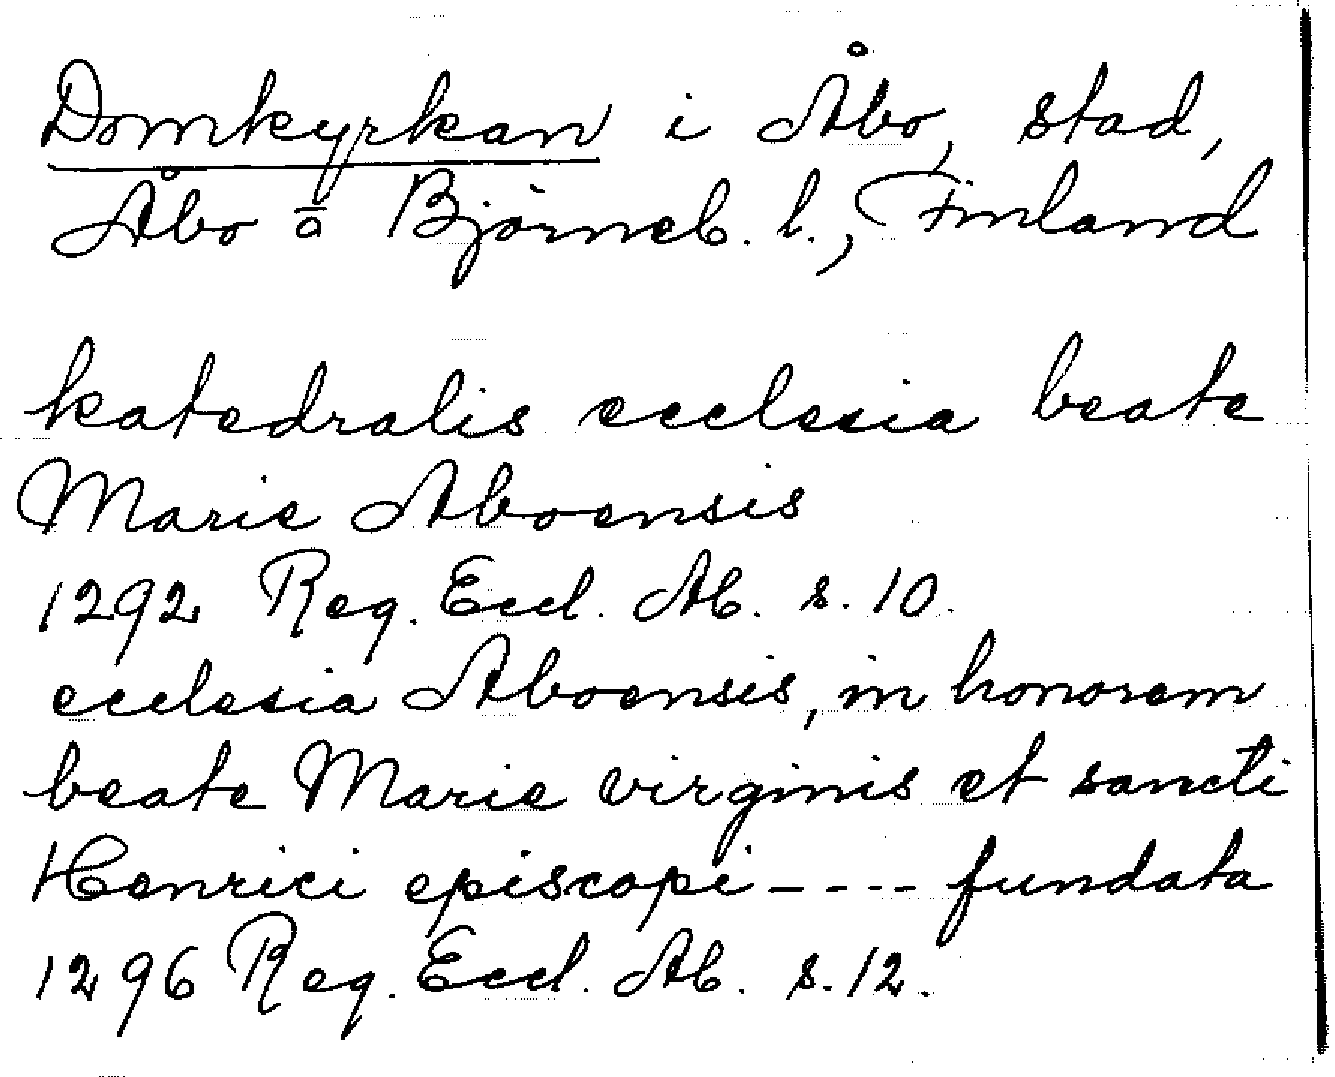 Domkyrkan i Åbo, stad,
Åbo o Björneb. l., Finland
katedralis ecclesia beate
Marie Aboensis
1292 Reg. Eccl. Ab. s. 10.
ecclesia Aboensis, in honorem
beate Marie virginis et sancti
Henrici episcopi ---- fundata
1296 Reg. Eccl. Ab. s. 12.